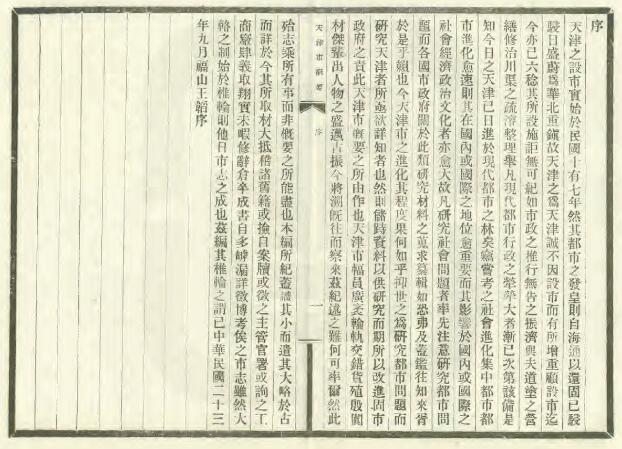 序
天津之設市實始於民國十有七年然其都市之發皇則自海通以還固已駸
駸日盛蔚爲華北重鎭故天津之爲天津誠不因設市而有所增重顧設市迄
今亦已六稔其所設施詎無可紀如市政之推行無告之振濟與夫道塗之營
繕修治川渠之疏濬整理舉凡現代都市行政之犖犖大者漸已次第該備是
知今日之天津已日進於現代都市之林矣竊嘗考之社會進化集中都市都
市進化愈速則其在國內或國際之地位愈重要而其影響於國內或國際之
社會經濟政治文化者亦愈大故凡研究社會問題者率先注意研究都市問
題而各國市政府關於此類研究材料之蒐求纂輯如恐弗及蓋鑑往知來胥
於是乎頼也今天津市之進化其程度果何如乎抑世之爲研究都市問題而
研究天津者所亟欲詳知者也然則儲跱資料以供研究而期所以改進固市
政府之責此天津市概要之所由作也天津市幅員廣袤輪軌交錯貨殖殷闐
材傑輩出人物之盛邁古振今將溯旣往而察來茲紀述之難何可率爾然此
天津市概要
序
一
殆志乘所有事而非概要之所能盡也本編所紀蓋識其小而遺其大略於古
而詳於今其所取材大抵稽諸舊籍或撿自案牘或徵之主管官署或詢之工
商廠肆義取翔實未暇修辭倉卒成書自多罅漏詳徵博考俟之市志雖然大
輅之制始於椎輪則他日市志之成也茲編其椎輪之謂已中華民國二十三
年九月福山王韜序